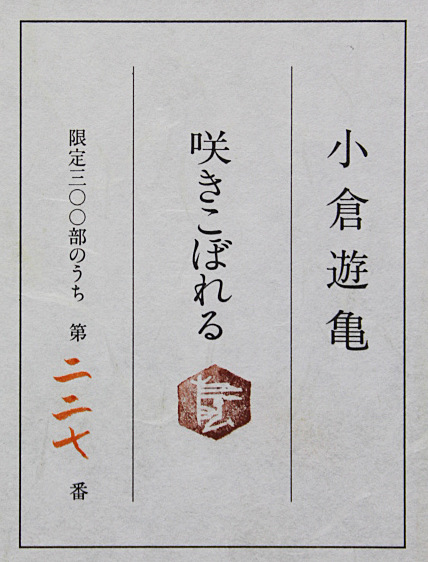 小倉遊亀
咲きこぼれる
限定三〇〇部のうち 第二二七番